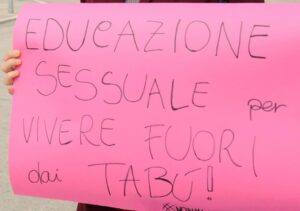 EDUCAZIONE
SESSUALE per
VIVERE FUORI
dai TABÙ!